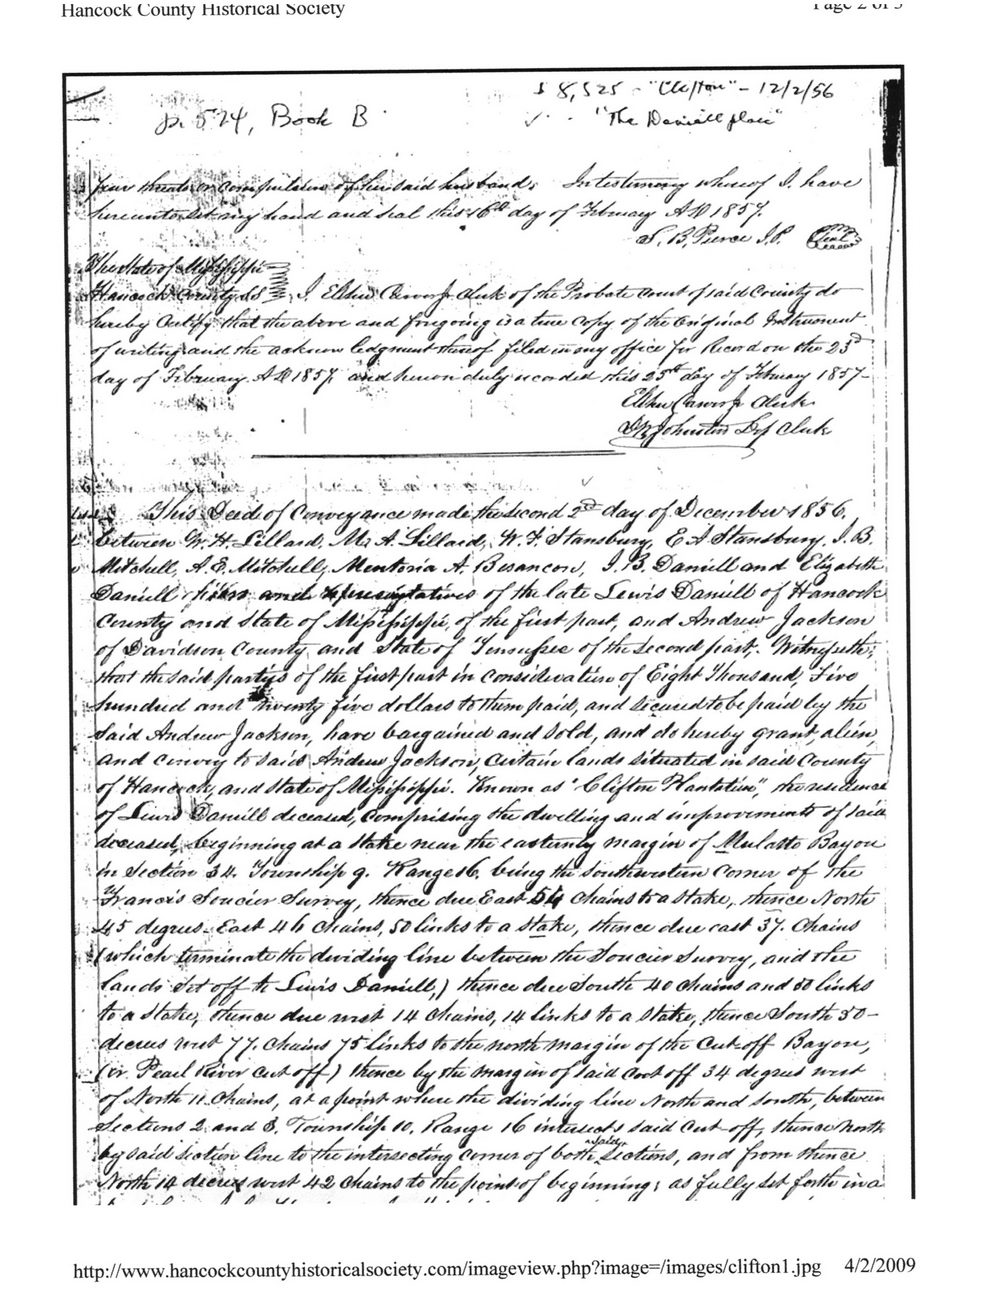 Hancock County Historical Society
Page 2 of 5
$ 8,525 - "Clifton" - 12/2/56
p. 524, Book B
"The Daniell place"
fear threats or compulsion of her said husband. In testimony whereof I have
hereunto set my hand and seal this 16th day of February AD 1857.
S. B. Pierce J.P. Seal
The State of Mississippi
Hancock County SS I, Elihu Carver Jr Clerk of the Probate Court of said County do
hereby Certify that the above and foregoing is a true Copy of the Original Instrument
of writing and the acknowledgment thereof filed in my office for Record on the 23d
day of February AD 1857, and hereon duly recorded this 25th day of February 1857-
Elihu Carver Jr Clerk
Johnston Dep Clerk
This Deed of Conveyance made the second 2nd day of December 1856,
between W. H. Lillard, M. A. Lillard, W. F. Stansbury, E A Stansbury, J. B.
Mitchell, A. E. Mitchell, Mentoria A. Besancon, J. B. Daniell and Elizabeth
Daniell heirs and representatives of the late Lewis Daniell of Hancock
County and State of Mississippi, of the first part, and Andrew Jackson
of Davidson County and State of Tennessee of the second part. Witnesseth;
that the said partys of the first part in consideration of Eight Thousand, Five
hundred and twenty five dollars to them paid, and secured to be paid by the
said Andrew Jackson, have bargained and sold, and do hereby grant, alien,
and convey to said Andrew Jackson, certain lands situated in said County
of Hancock, and State of Mississippi. Known as "Clifton Plantation", the residence
of Lewis Daniell deceased, comprising the dwelling and improvements of said
deceased, beginning at a stake near the easternly margin of Mulatto Bayou
in Section 34. Township 9. Range 16. being the Southwestern Corner of the
Francis Soucier Survey, thence due East 54 chains to a stake, thence North
45 degrees East 46 chains, 50 links to a stake, thence due east 37. Chains
(which terminate the dividing line between the Soucier Survey, and the
lands set off to Lewis Daniell,) thence due South 40 chains and 50 links
to a stake, thence due west 14 chains, 14 links to a stake, thence South 50-
degrees west 77. Chains 75 links to the north margin of the Cut-off Bayou,
(or Pearl River cut off) thence by the margin of said Cut off 34 degrees west
of North 11 Chains, at a point where the dividing line North and south, between
Sections 2 and 3, Township 10. Range 16 intersects said Cut-off, thence North
by said section line to the intersecting corner of both said sections, and from thence
North 14 degrees west 42 chains to the point of beginning; as fully set forth in a
http://www.hancockcountyhistoricalsociety.com/imageview.php?image=/images/clifton1.jpg 4/2/2009